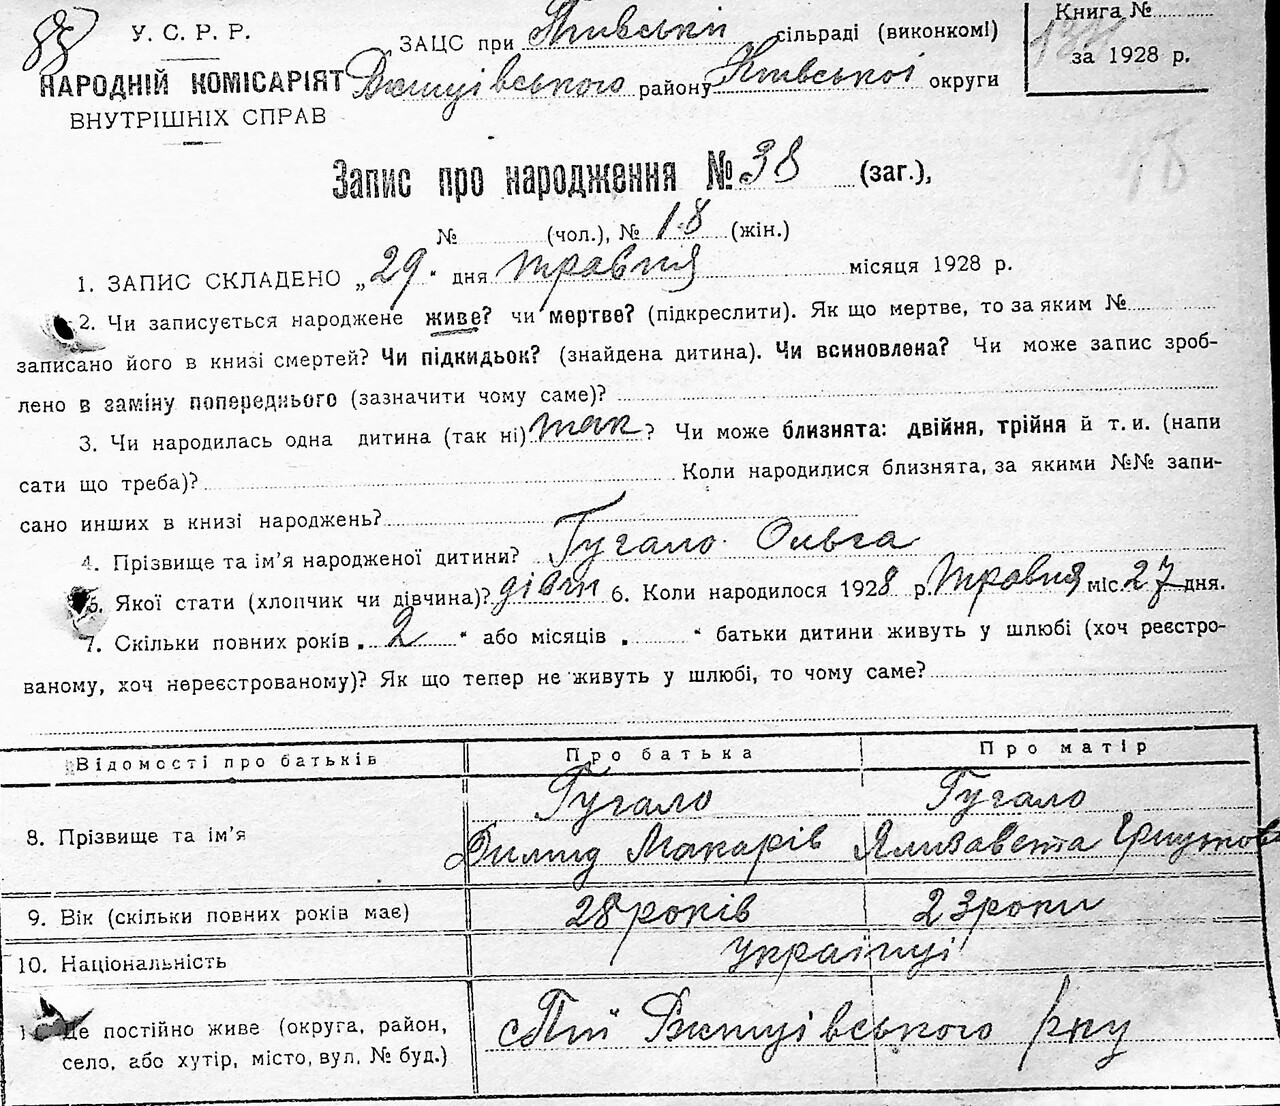 У. С. Р. Р.
НАРОДНІЙ КОМІСАРІЯТ
ВНУТРІШНІХ СПРАВ
ЗАЦС при Пиївській сільраді (виконкомі)
Ржищівського району Київської округи
Книга №
за 1928 р.
Запис про народження № 38 (заг.),
№ (чол.), № 18 (жін.)
1. ЗАПИС СКЛАДЕНО „29" дня травня місяця 1928 р.
2. Чи записується народжене живе? чи мертве? (підкреслити). Як що мертве, то за яким №
записано його в книзі смертей? Чи підкидьок? (знайдена дитина). Чи всиновлена? Чи може запис зроб-
лено в заміну попереднього (зазначити чому саме)?
3. Чи народилась одна дитина (так ні) так? Чи може близнята: двійня, трійня й т. и. (напи
сати що треба)? Коли народилися близнята, за якими №№ запи-
сано инших в книзі народжень?
4. Прізвище та ім'я народженої дитини? Гугало Ольга
5. Якої стати (хлопчик чи дівчина)? дівчи 6. Коли народилося 1928 р. травня міс. 27 дня.
7. Скільки повних років „2" або місяців „ " батьки дитини живуть у шлюбі (хоч реєстро-
ваному, хоч нереєстрованому)? Як що тепер не живуть у шлюбі, то чому саме?
Відомості про батьків Про батька Про матір
Гугало Гугало
8. Прізвище та ім'я Димид Макарів Ялизавета
9. Вік (скільки повних років має) 28 років 23 роки
10. Національність українці
Де постійно живе (округа, район,
село, або хутір, місто, вул. № буд.) с Пії Ржищівського р-ну